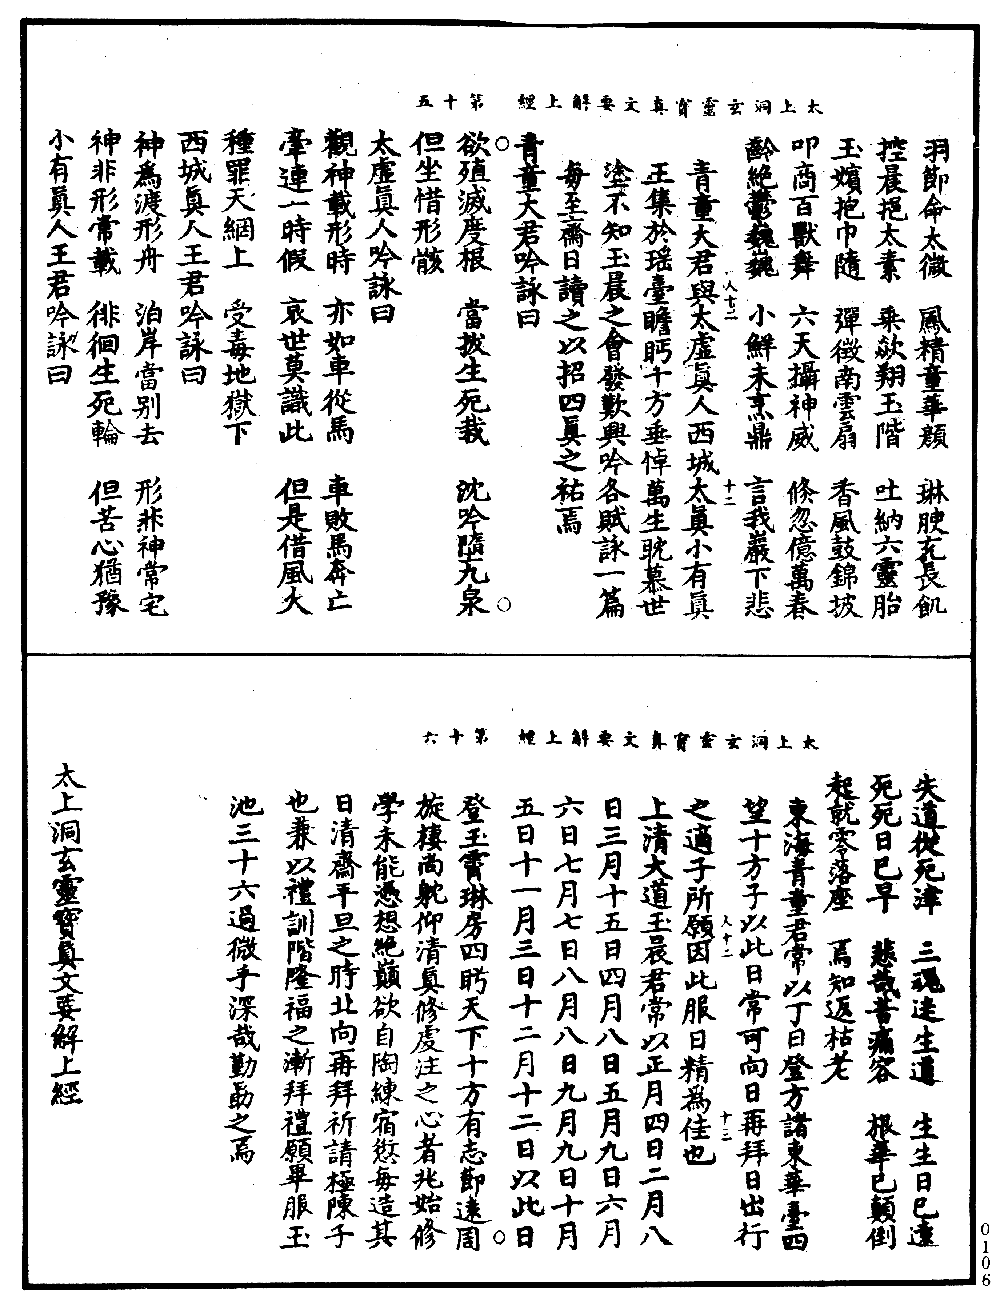 太上洞玄靈寶真文要解上經　第十五
羽節命太微　鳳精童華顏　琳腴充長飢
控晨挹太素　乘欻翔玉階　吐納六靈胎
玉嬪抱巾隨　彈徵南雲扇　香風鼓錦披
叩商百獸舞　六天攝神威　倏忽億萬春
齡絕鬱巍巍　小鮮未烹鼎　言我巖下悲
青童大君與太虛眞人西城太眞小有眞
王集於瑶臺瞻眄十方垂悼萬生眈慕世
塗不知玉晨之會發歎興吟各賦詠一篇
每至齋日讀之以招四眞之祐焉
青童大君吟詠曰
欲殖滅度根　當拔生死栽　沈吟墮九泉
但坐惜形骸
太虛眞人吟詠曰
觀神載形時　亦如車從馬　車敗馬奔亡
牽連一時假　哀世莫識此　但是借風火
種罪天網上　受毒地獄下
西城眞人王君吟詠曰
神爲渡形舟　泊岸當别去　形非神常宅
神非形常載　徘徊生死輪　但苦心猶豫
小有眞人王君吟詠曰
太上洞玄靈寶真文要解上經　第十六
失道從死津　三魂迷生道　生生日已遠
死死日已早　悲哉苦痛容　根華已顛倒
起就零落塵　焉知返枯老
東海青童君常以丁日登方諸東華臺四
望十方子以此日常可向日再拜日出行
之適子所願因此服日精爲佳也
上清大道玉晨君常以正月四日二月八
日三月十五日四月八日五月九日六月
六日七月七日八月八日九月九日十月
五日十一月三日十二月十二日以此日
登玉霄琳房四眄天下十方有志節遠周
旋棲尚躭仰清眞修虔注之心者兆始修
學未能憑想絕巔欲自陶練宿愆每造其
日清齋平旦之時北向再拜祈請極陳子
也兼以禮訓階隆福之漸拜禮願畢服玉
池三十六過微乎深哉勤勗之焉
太上洞玄靈寶真文要解上經
0106